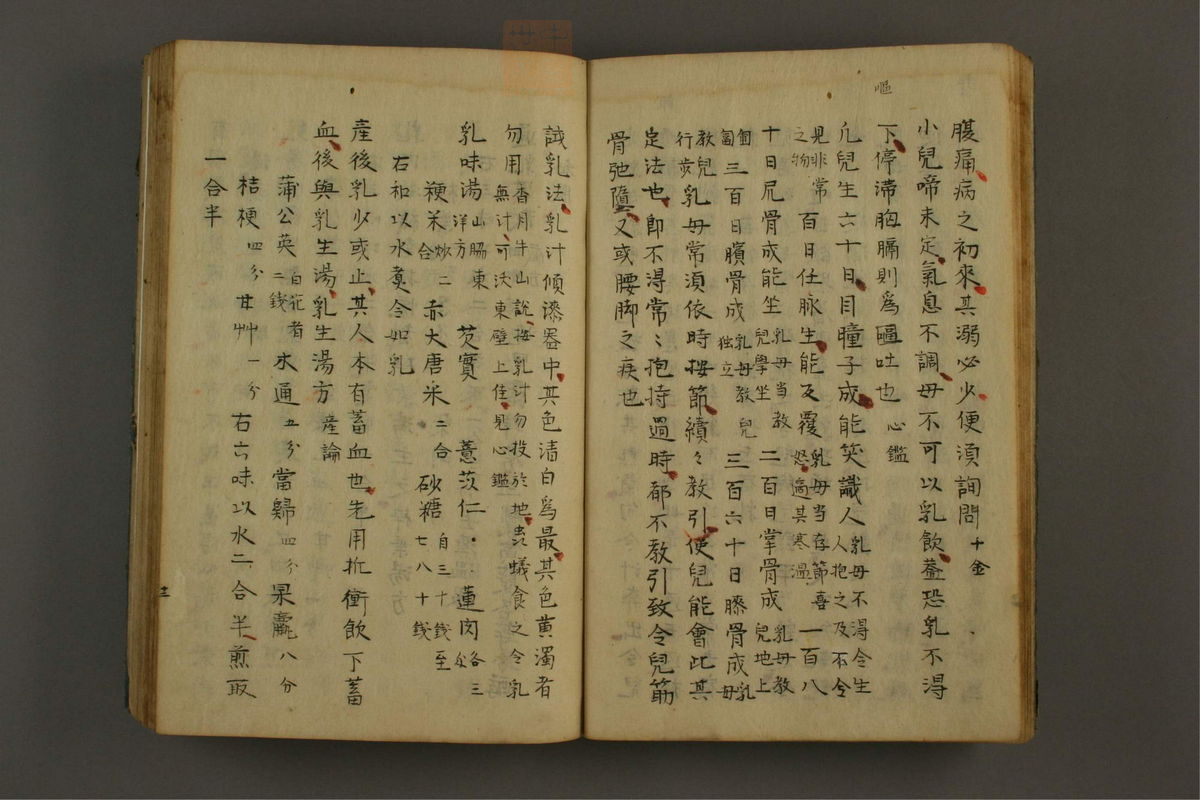 嘔
腹痛病之初來其溺必少便須詢問 十金
小兒啼未定氣息不調母不可以乳飲蓋恐乳不得
下停滯胸膈則爲嘔吐也 心鑑
凡兒生六十日目瞳子成能笑識人 乳母不得令生人抱之及不令
見非常之物 百日任脉生能反覆 乳母当存節喜怒適其寒温 一百八
十日尻骨成能坐 乳母当教兒學坐 二百日掌骨成 乳母教兒地上
匍匐 三百日臏骨成 乳母教兒獨立 三百六十日膝骨成 乳母
教兒行步 乳母常須依時按節續々教引使兒能會此其
定法也即不得常々抱持過時都不教引致令兒筋
骨弛墮又或腰脚之疾也
試乳法乳汁傾漆器中其色清白爲最其色黄濁者
勿用 香月牛山説按乳汁勿投於地虫蟻食之令乳無汁可沃東壁上佳見心鑑
乳味湯 山脇東洋方 芡實 薏苡仁 蓮肉 各三
粳米 炒二合 赤大唐米 二合 砂糖 自三十錢至七八十錢
右和以水煮令如乳
産後乳少或止其人本有蓄血也先用折衝飲下蓄
血後與乳生湯乳生湯方 産論
蒲公英 白花者二錢 木通 五分 當歸 四分 栗毳 八分
桔梗 四分 甘艸 一分 右六味以水二合半煎取
一合半